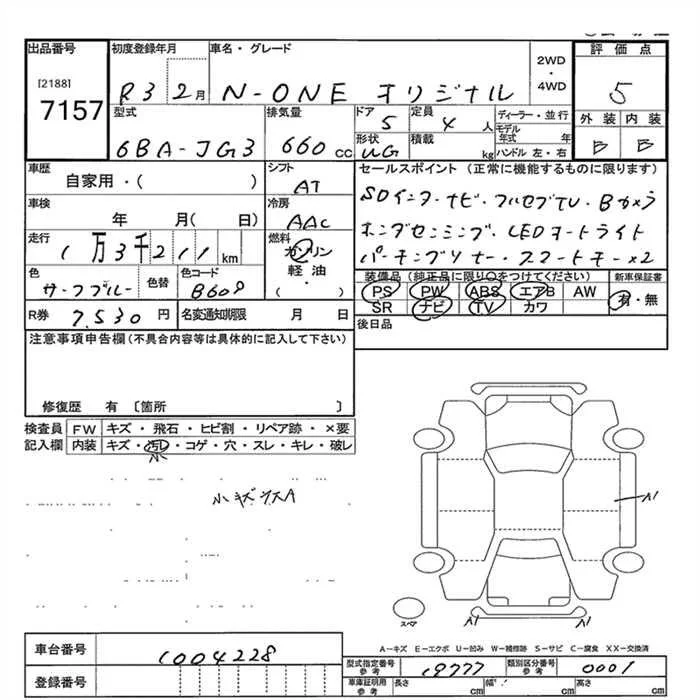 出品番号 初度登録年月 車名・グレード 2WD・4WD 評価点
[2188]
7157 R3 2月 N-ONE オリジナル 5
型式 排気量 ドア 定員 ディーラー・並行 外装 内装
6BA-JG3 660cc 5 4人 モデル年式 年 B B
形状 積載
UG kg ハンドル 左・右
車歴 シフト セールスポイント (正常に機能するものに限ります)
自家用・( ) AT
車検 冷房 SDインターナビ・フルセグTV・Bカメラ
年 月( 日) AAC ホンダセンシング・LEDオートライト
走行 燃料 パーキングソナー・スマートキー×2
1万3千211km ガソリン
軽油・
( )
色 色替 色コード 装備品(純正品に限り○をつけてください) 新車保証書
サーフブルー B608 PS PW ABS エアB AW 有・無
SR ナビ TV カワ
R券 7,530円 名変通知期限 月 日 後日品
注意事項申告欄(不具合内容等は具体的に記入して下さい)
修復歴 有 〔箇所 〕
検査員記入欄 FW キズ・飛石・ヒビ割・リペア跡・×要
内装 キズ・汚レ・コゲ・穴・スレ・キレ・破レ
小
小キズウスA
A1
A1 A1
スペア
A-キズ E-エクボ U-凹み W-補修跡 S-サビ C-腐食 XX-交換済
車台番号 1004228
登録番号
型式指定番号 参考 19777 類別区分番号 参考 0001
車庫証明用 参考 長さ cm 幅 cm 高さ cm